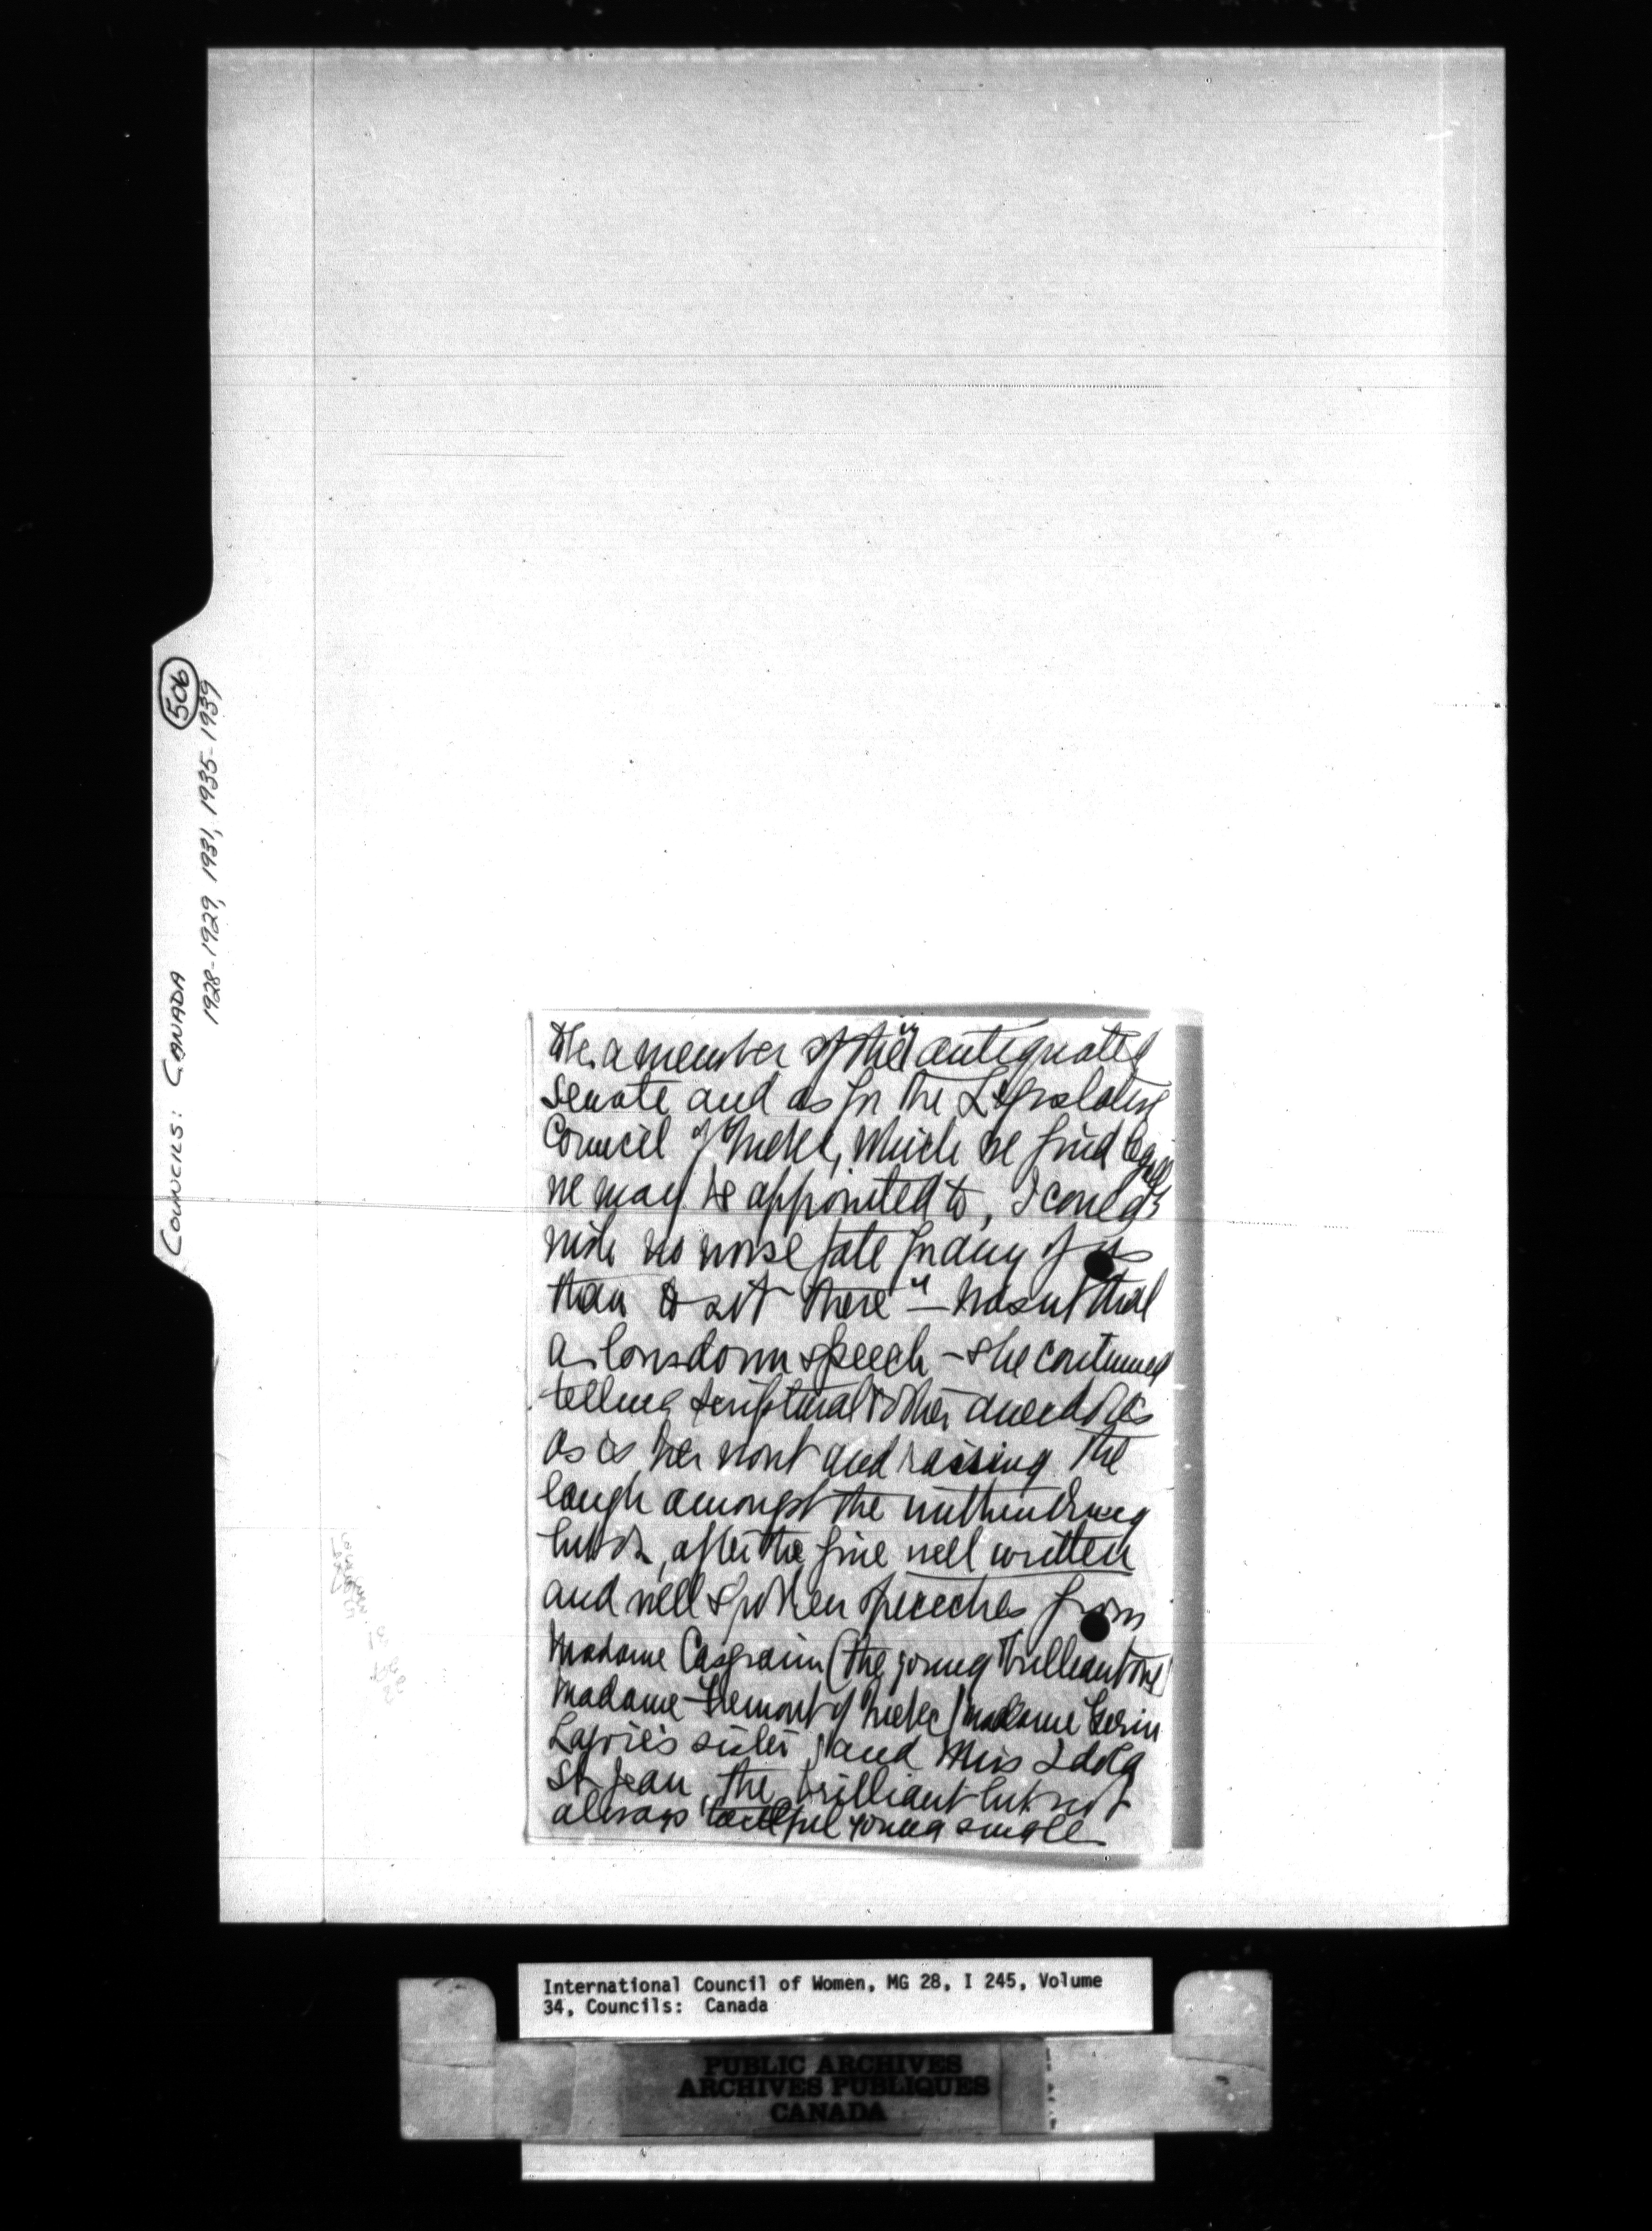 COUNCILS: CANADA 506
1928-1929, 1931, 1935-1939
be a member of their antiquated
Senate and as for the Legislative
Council of Quebec, which we find legally
we may be appointed to, I could
wish no worse fate for any of us
than to sit there" — wasn't that
a speech — she continued
telling scriptural & other anecdotes
as is her wont and raising the
laugh amongst the
after the fine well written
and well spoken speeches from
Madame Casgrain (the young brilliant one)
Madame Fremont of Quebec (madame Gerin
Lajoie's sister) and Miss Idola
St Jean, the brilliant but not
always tactful young single
International Council of Women, MG 28, I 245, Volume
34, Councils: Canada
PUBLIC ARCHIVES
ARCHIVES PUBLIQUES
CANADA